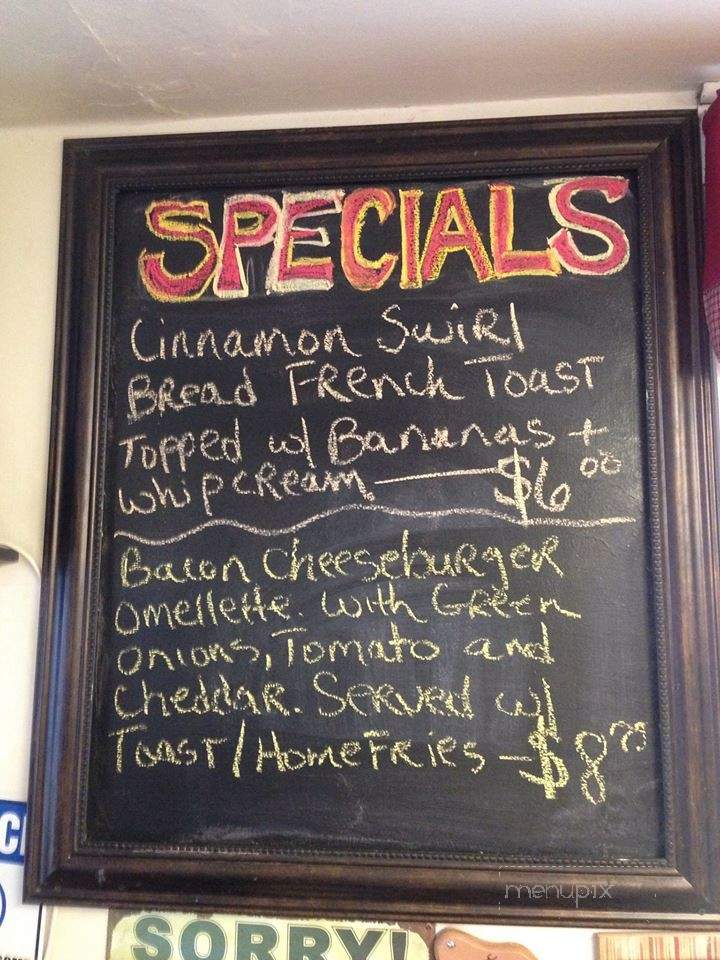 SPECIALS
Cinnamon Swirl
Bread French Toast
Topped w/ Bananas +
whipcream — $6 00
Bacon Cheeseburger
Omellette. With Green
Onions, Tomato and
Cheddar. Served w/
Toast/Homefries - $8
menupix
SORRY!